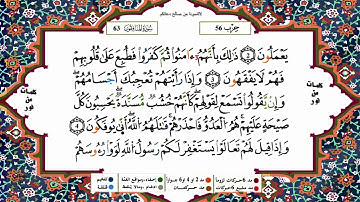 لاتنسونا من صالح دعائكم
سُورَةُ المُنَافِقُون 63
حِزب 56
يَعْمَلُونَ ۝ ذَٰلِكَ بِأَنَّهُمْ ءَامَنُوا۟ ثُمَّ كَفَرُوا۟ فَطُبِعَ عَلَىٰ قُلُوبِهِمْ
فَهُمْ لَا يَفْقَهُونَ ۝ وَإِذَا رَأَيْتَهُمْ تُعْجِبُكَ أَجْسَامُهُمْ
وَإِن يَقُولُوا۟ تَسْمَعْ لِقَوْلِهِمْ كَأَنَّهُمْ خُشُبٌ مُّسَنَّدَةٌ يَحْسَبُونَ كُلَّ
صَيْحَةٍ عَلَيْهِمْ هُمُ ٱلْعَدُوُّ فَٱحْذَرْهُمْ قَٰتَلَهُمُ ٱللَّهُ أَنَّىٰ يُؤْفَكُونَ ۝
وَإِذَا قِيلَ لَهُمْ تَعَالَوْا۟ يَسْتَغْفِرْ لَكُمْ رَسُولُ ٱللَّهِ لَوَّوْا۟ رُءُوسَهُمْ
كلمات
من
نور
كلمات
من
نور